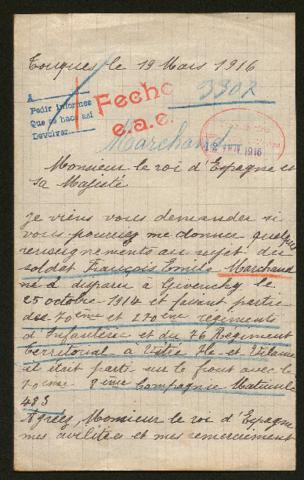 Touques le 19 Mars 1916
3302
A
Pedir informes
Que se hace así
Devolver
Fecho
e.a.c.
Marchand
1916
Monsieur le roi d'Espagne et
sa Majesté.
Je viens vous demander si
vous pourriez me donner quelque
renseignements au sujet du
soldat François Emile Marchand
né à disparu à Givenchy le
25 octobre 1914 et faisant partie
des 70ème et 270ème régiments
d'Infanterie et du 76 Régiment
territorial à Vitré Ile et Vilaine
il était parti sur le front avec le
70ème 8ème Compagnie Matricule
483
Agréez, Monsieur le roi d'Espagne
mes civilités et mes remerciement